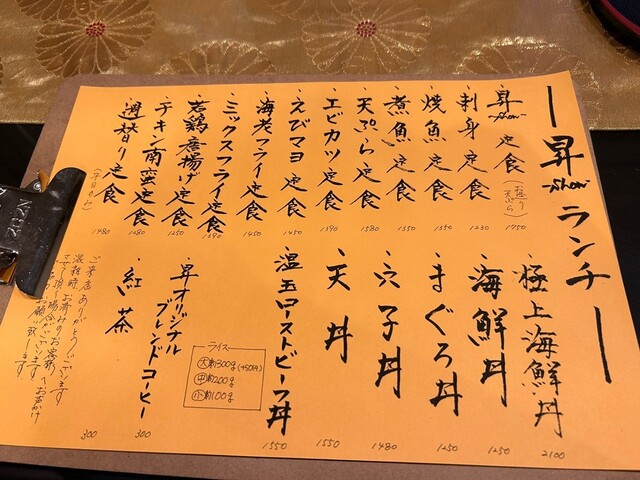 昇 -Show- ランチ
・昇 -Show- 定食 (お造り 天ぷら) 1750
・刺身定食 1230
・焼魚定食 1350
・煮魚定食 1350
・天ぷら定食 1580
・エビカツ定食 1390
・えびマヨ定食 1450
・海老フライ定食 1450
・ミックスフライ定食 1390
・若鶏唐揚げ定食 1250
・チキン南蛮定食 1280
・週替り定食 (平日のみ) 1480
・極上海鮮丼 2100
・海鮮丼 1250
・まぐろ丼 1250
・穴子丼 1480
・天丼 1550
・温玉ローストビーフ丼 1550
ライス
大 約300g (+50円)
中 約200g
小 約100g
・昇オリジナル
ブレンドコーヒー 300
・紅茶 300
ご来店ありがとうございます
混雑時、お済みのお客様へお声がけ
させて頂く場合がございます
お願い致します